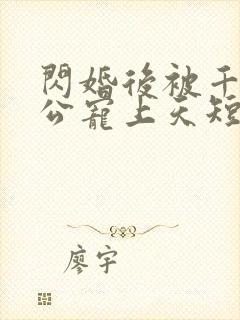 閃婚後被千
公寵上天短
廖宇